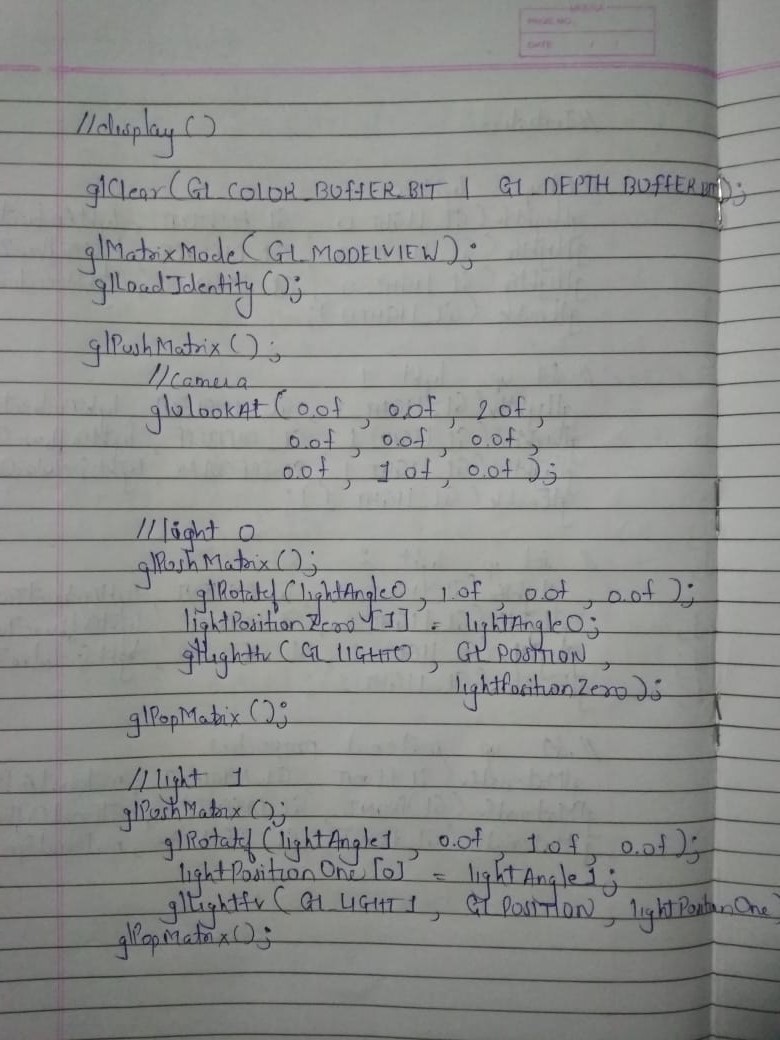 PAGE NO.
DATE / /
//display ()
glClear (GL_COLOR_BUFFER_BIT | GL_DEPTH_BUFFER_BIT);
glMatrixMode (GL_MODELVIEW);
glLoadIdentity ();
glPushMatrix ();
//Camera
gluLookAt (0.0f , 0.0f , 2.0f ,
0.0f , 0.0f , 0.0f ,
0.0f , 1.0f , 0.0f );
//light 0
glPushMatrix ();
glRotatef (lightAngle0 , 1.0f , 0.0f , 0.0f );
lightPositionZero [1] = lightAngle0;
glLightfv (GL_LIGHT0 , GL_POSITION ,
lightPositionZero);
glPopMatrix ();
//light 1
glPushMatrix ();
glRotatef (lightAngle1 , 0.0f , 1.0f , 0.0f );
lightPositionOne [0] = lightAngle1;
glLightfv (GL_LIGHT1 , GL_POSITION , lightPositionOne)
glPopMatrix ();